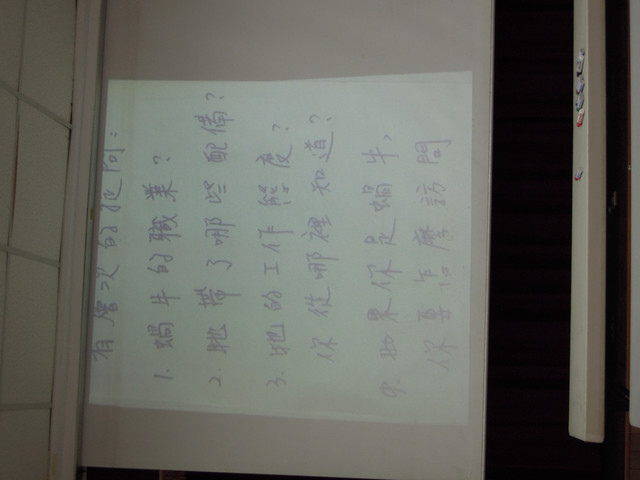 有層次的提問：
1. 蝸牛的職業？
2. 牠帶了哪些配備？
3. 牠的工作態度？
你從哪裡知道？
4. 如果你是蝸牛，
你要怎麼訪問